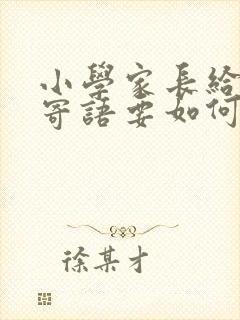 小學家長給
寄語要如何
徐某才